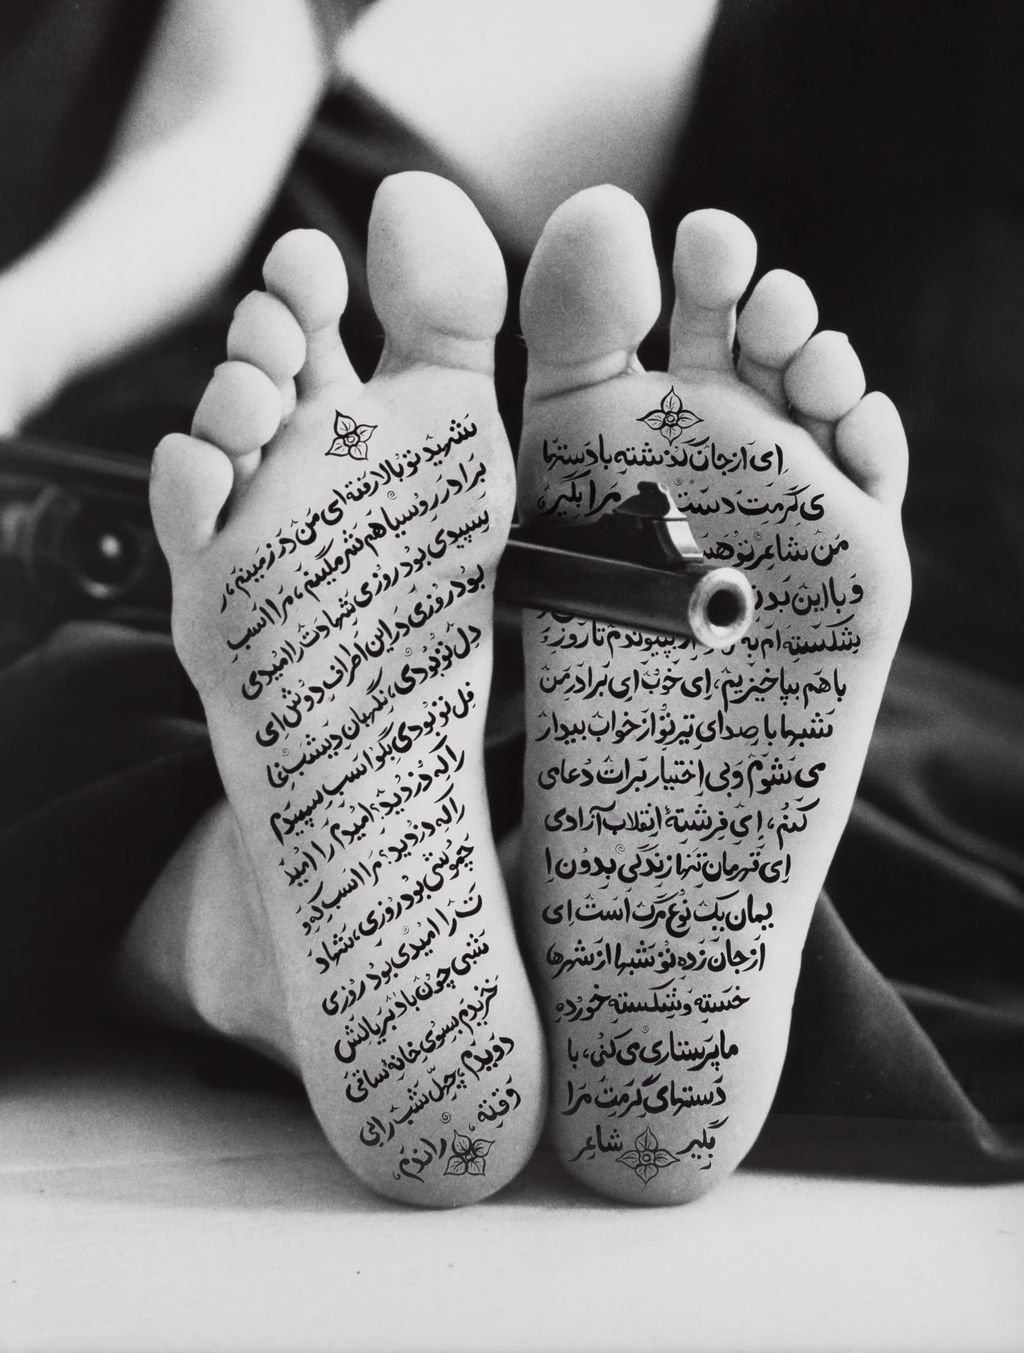 ای از جان گذشته با دستها
ی گرمت دست مرا بگیر،
من شاعر تو
و با این
شکسته ام تا روز
با هم بپا خیزیم، ای خوب ای برادر من
شبها با صدای تیر تو از خواب بیدار
می شوم و بی اختیار برات دعا می
کنم، ای فرشتۀ انقلاب آزادی
ای قهرمان تنها زندگی بدون ا
یمان یک نوع مرگ است ای
از جان زده تو شبها از شهرها
خسته و شکسته خورده
ما پرستاری می کنی، با
دستهای گرمت مرا
بگیر شاعر
شهید تو بالا رفته ای من در زمینم،
برادر رو سیاهم شرمگینم، مرا اسب
سپیدی بود روزی شهادت را امیدی
بود روزی در این اطراف دوش ای
دل تو بودی، نگهبان دیشب غا
فل تو بودی بگو اسب سپیدم
را که دزدید؟ امیدم را امید
را که دزدید؟ مرا اسب
چموشی بود روزی، شهاد
ت را امیدی بود روزی
شبی چون باد بر یالش
خزیدم بسوی خانۀ ساقی
دویدم، چهل شب را
وقفه، راندم،